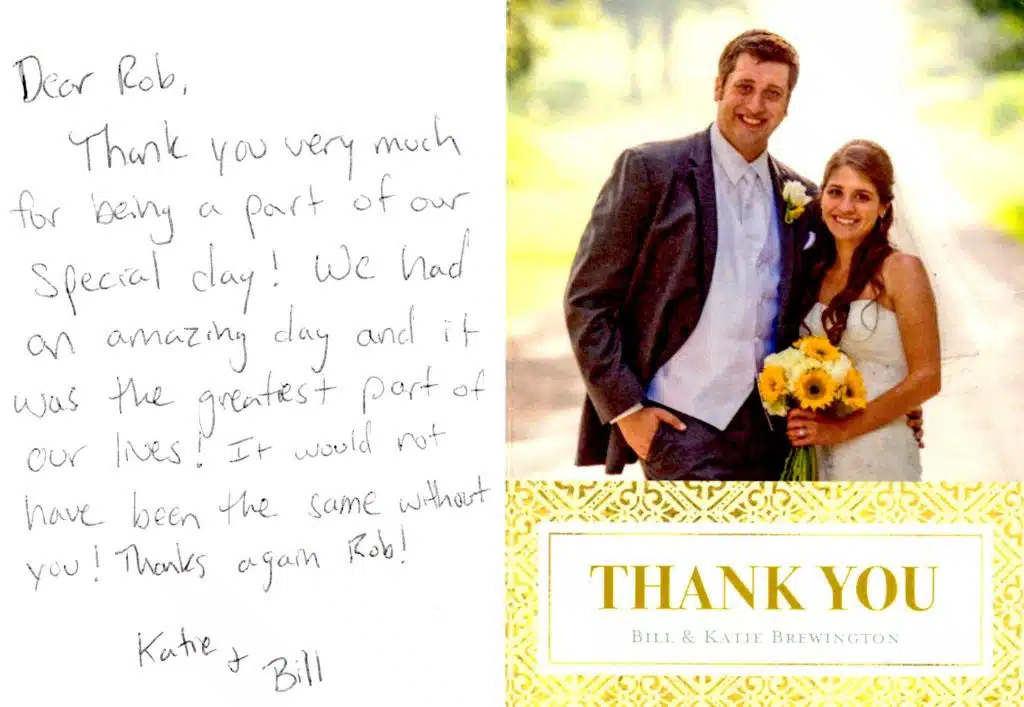 Dear Rob,
Thank you very much
for being a part of our
special day! We had
an amazing day and it
was the greatest part of
our lives! It would not
have been the same without
you! Thanks again Rob!
Katie + Bill
THANK YOU
BILL & KATIE BREWINGTON